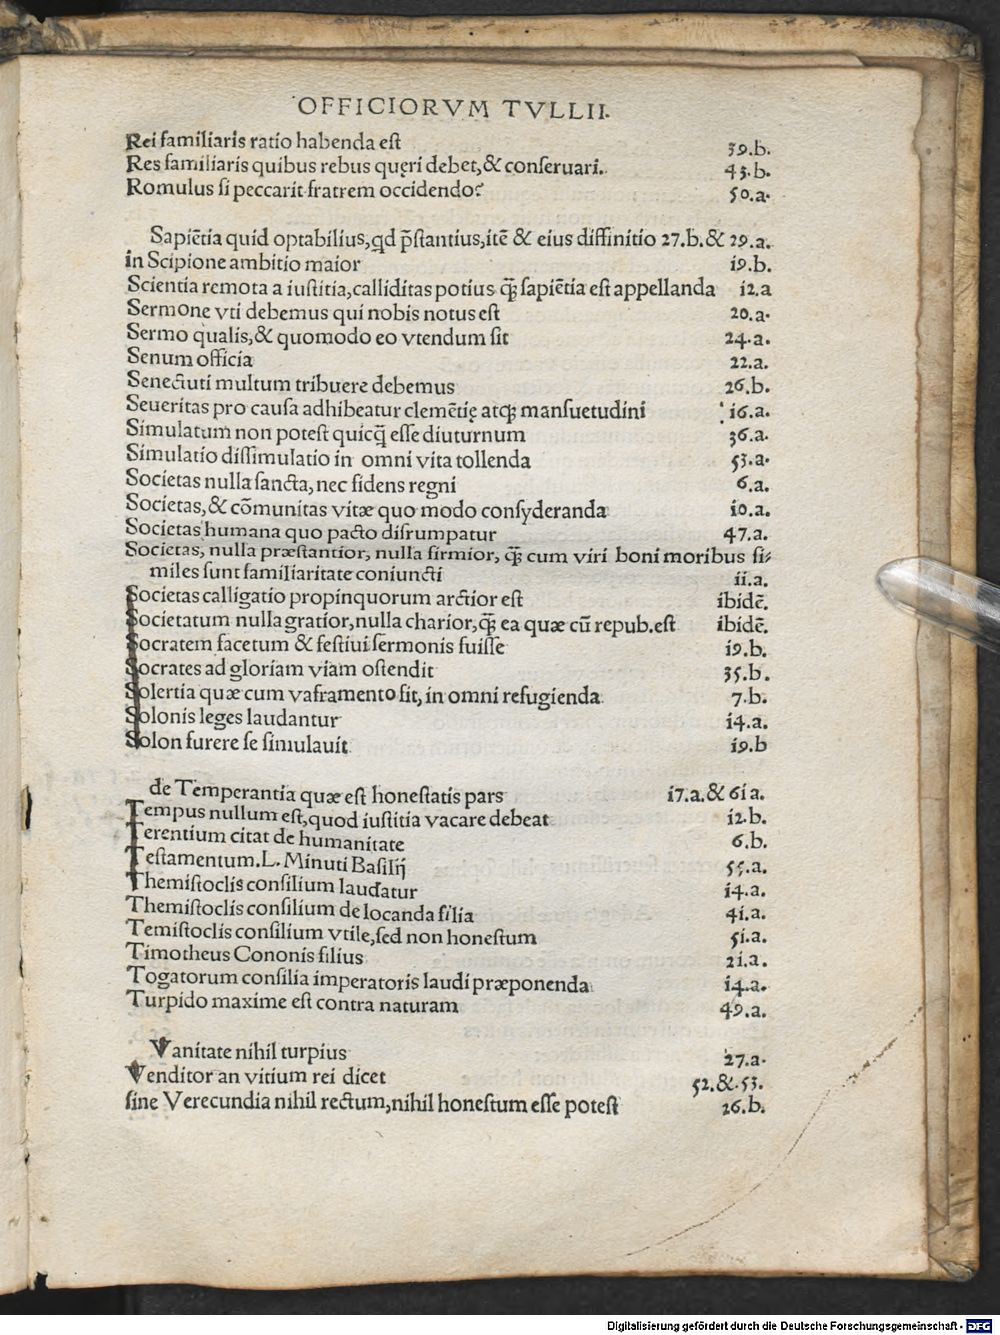 OFFICIORVM TVLLII.
Rei familiaris ratio habenda est 39.b.
Res familiaris quibus rebus quęri debet,& conseruari. 43.b.
Romulus si peccarit fratrem occidendo? 50.a.
Sapiẽtia quid optabilius,qd p̃stantius,itẽ & eius diffinitio 27.b.& 29.a.
in Scipione ambitio maior i9.b.
Scientia remota a iustitia,calliditas potius q̃ꝫ sapiẽtia est appellanda i2.a
Sermone vti debemus qui nobis notus est 20.a.
Sermo qualis,& quomodo eo vtendum sit 24.a.
Senum officia 22.a.
Senectuti multum tribuere debemus 26.b.
Seueritas pro causa adhibeatur clemẽtię atqꝫ mansuetudini i6.a.
Simulatum non potest quicq̃ esse diuturnum 36.a.
Simulatio dissimulatio in omni vita tollenda 53.a.
Societas nulla sancta,nec fidens regni 6.a.
Societas,& cõmunitas vitæ quo modo consyderanda i0.a.
Societas humana quo pacto disrumpatur 47.a.
Societas, nulla præstantior, nulla firmior, q̃ꝫ cum viri boni moribus si-
miles sunt familiaritate coniuncti ii.a.
Societas calligatio propinquorum arctior est ibidẽ.
Societatum nulla gratior,nulla charior,q̃ꝫ ea quæ cũ repub.est ibidẽ.
Socratem facetum & festiui sermonis fuisse i9.b.
Socrates ad gloriam viam ostendit 35.b.
Solertia quæ cum vaframento sit, in omni refugienda 7.b.
Solonis leges laudantur i4.a.
Solon furere se simulauit i9.b
de Temperantia quæ est honestatis pars i7.a.& 6i a.
Tempus nullum est,quod iustitia vacare debeat i2.b.
Terentium citat de humanitate 6.b.
Testamentum.L.Minuti Basilij 55.a.
Themistoclis consilium laudatur i4.a.
Themistoclis consilium de locanda filia 4i.a.
Temistoclis consilium vtile,sed non honestum 5i.a.
Timotheus Cononis filius 2i.a.
Togatorum consilia imperatoris laudi præponenda i4.a.
Turpido maxime est contra naturam 49.a.
Vanitate nihil turpius 27.a.
Venditor an vitium rei dicet 52.&.53.
sine Verecundia nihil rectum,nihil honestum esse potest 26.b.
Digitalisierung gefördert durch die Deutsche Forschungsgemeinschaft - DFG